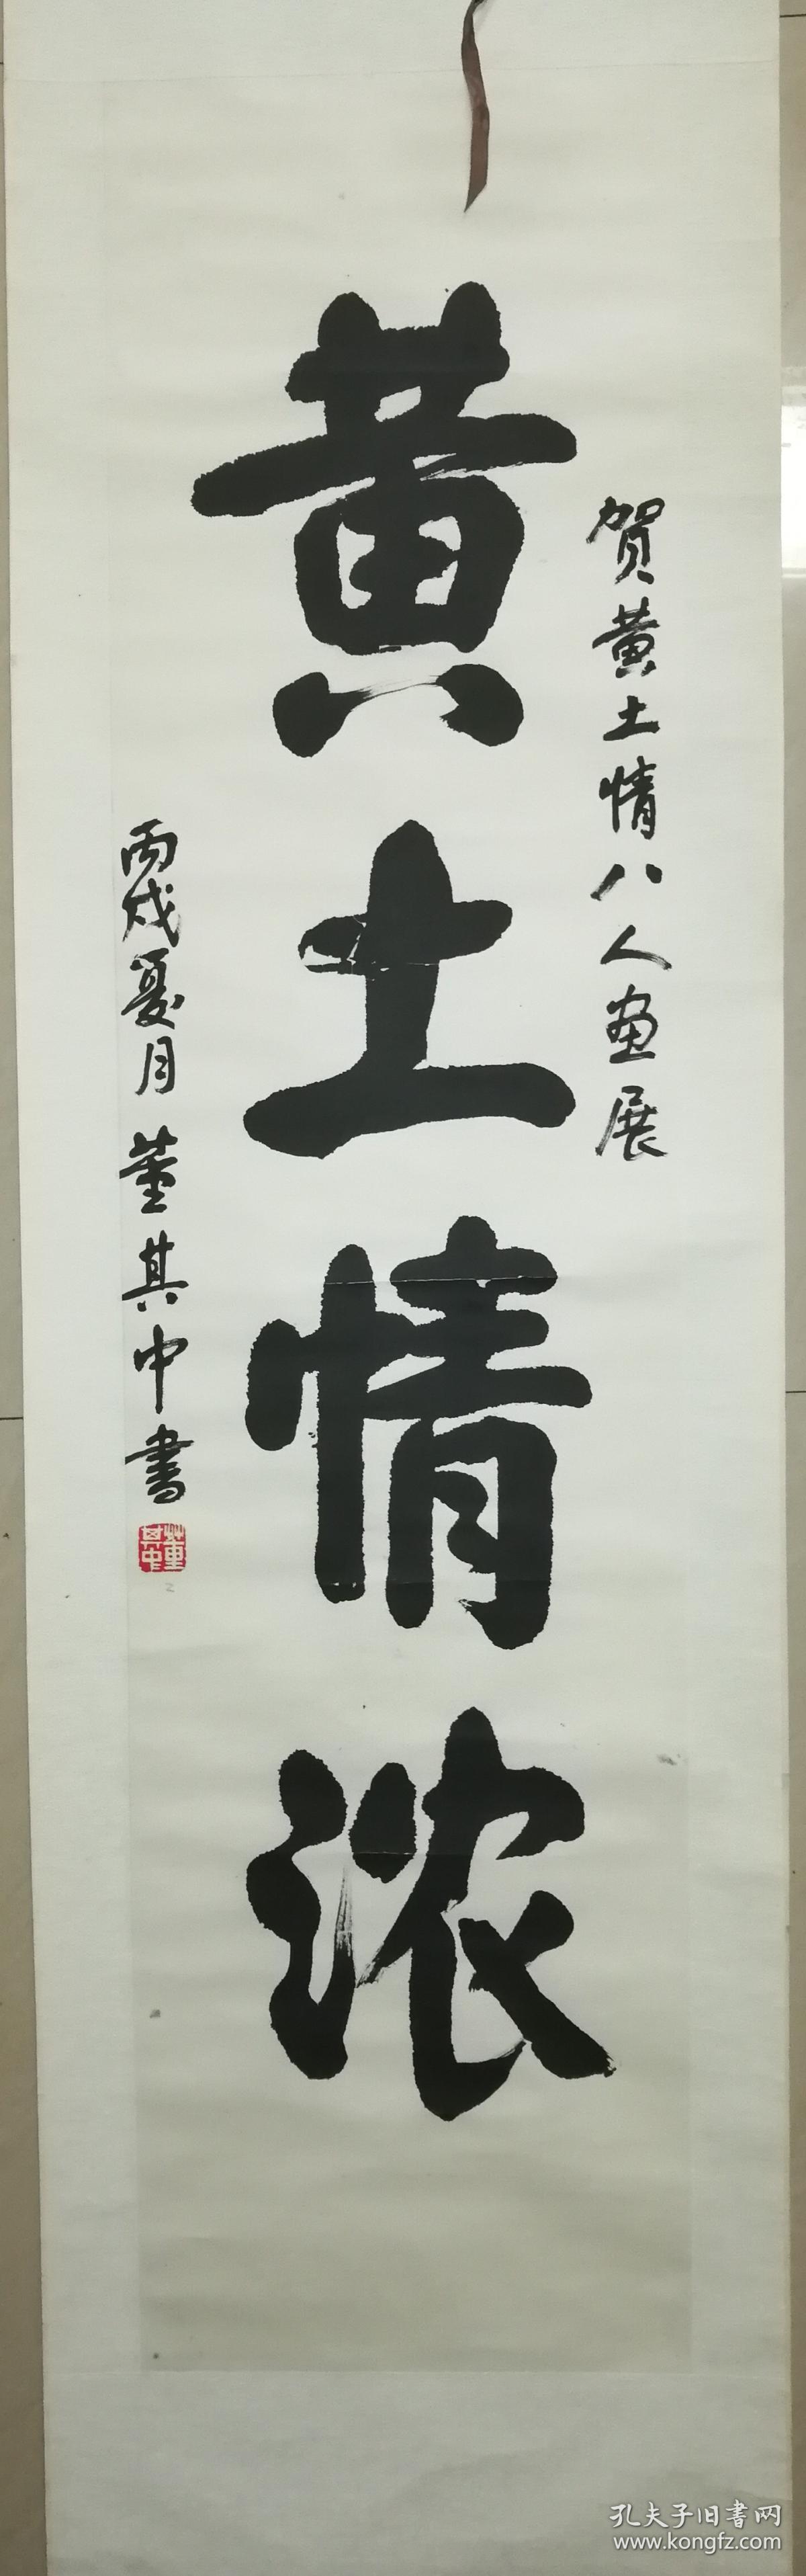 贺黄土情八人画展
黄土情浓
丙戌夏月 董其中书
董其中
孔夫子旧书网
www.kongfz.com